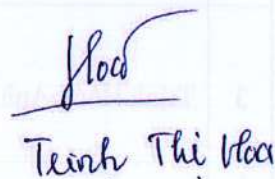 Hoa
Trinh Thi Hoa